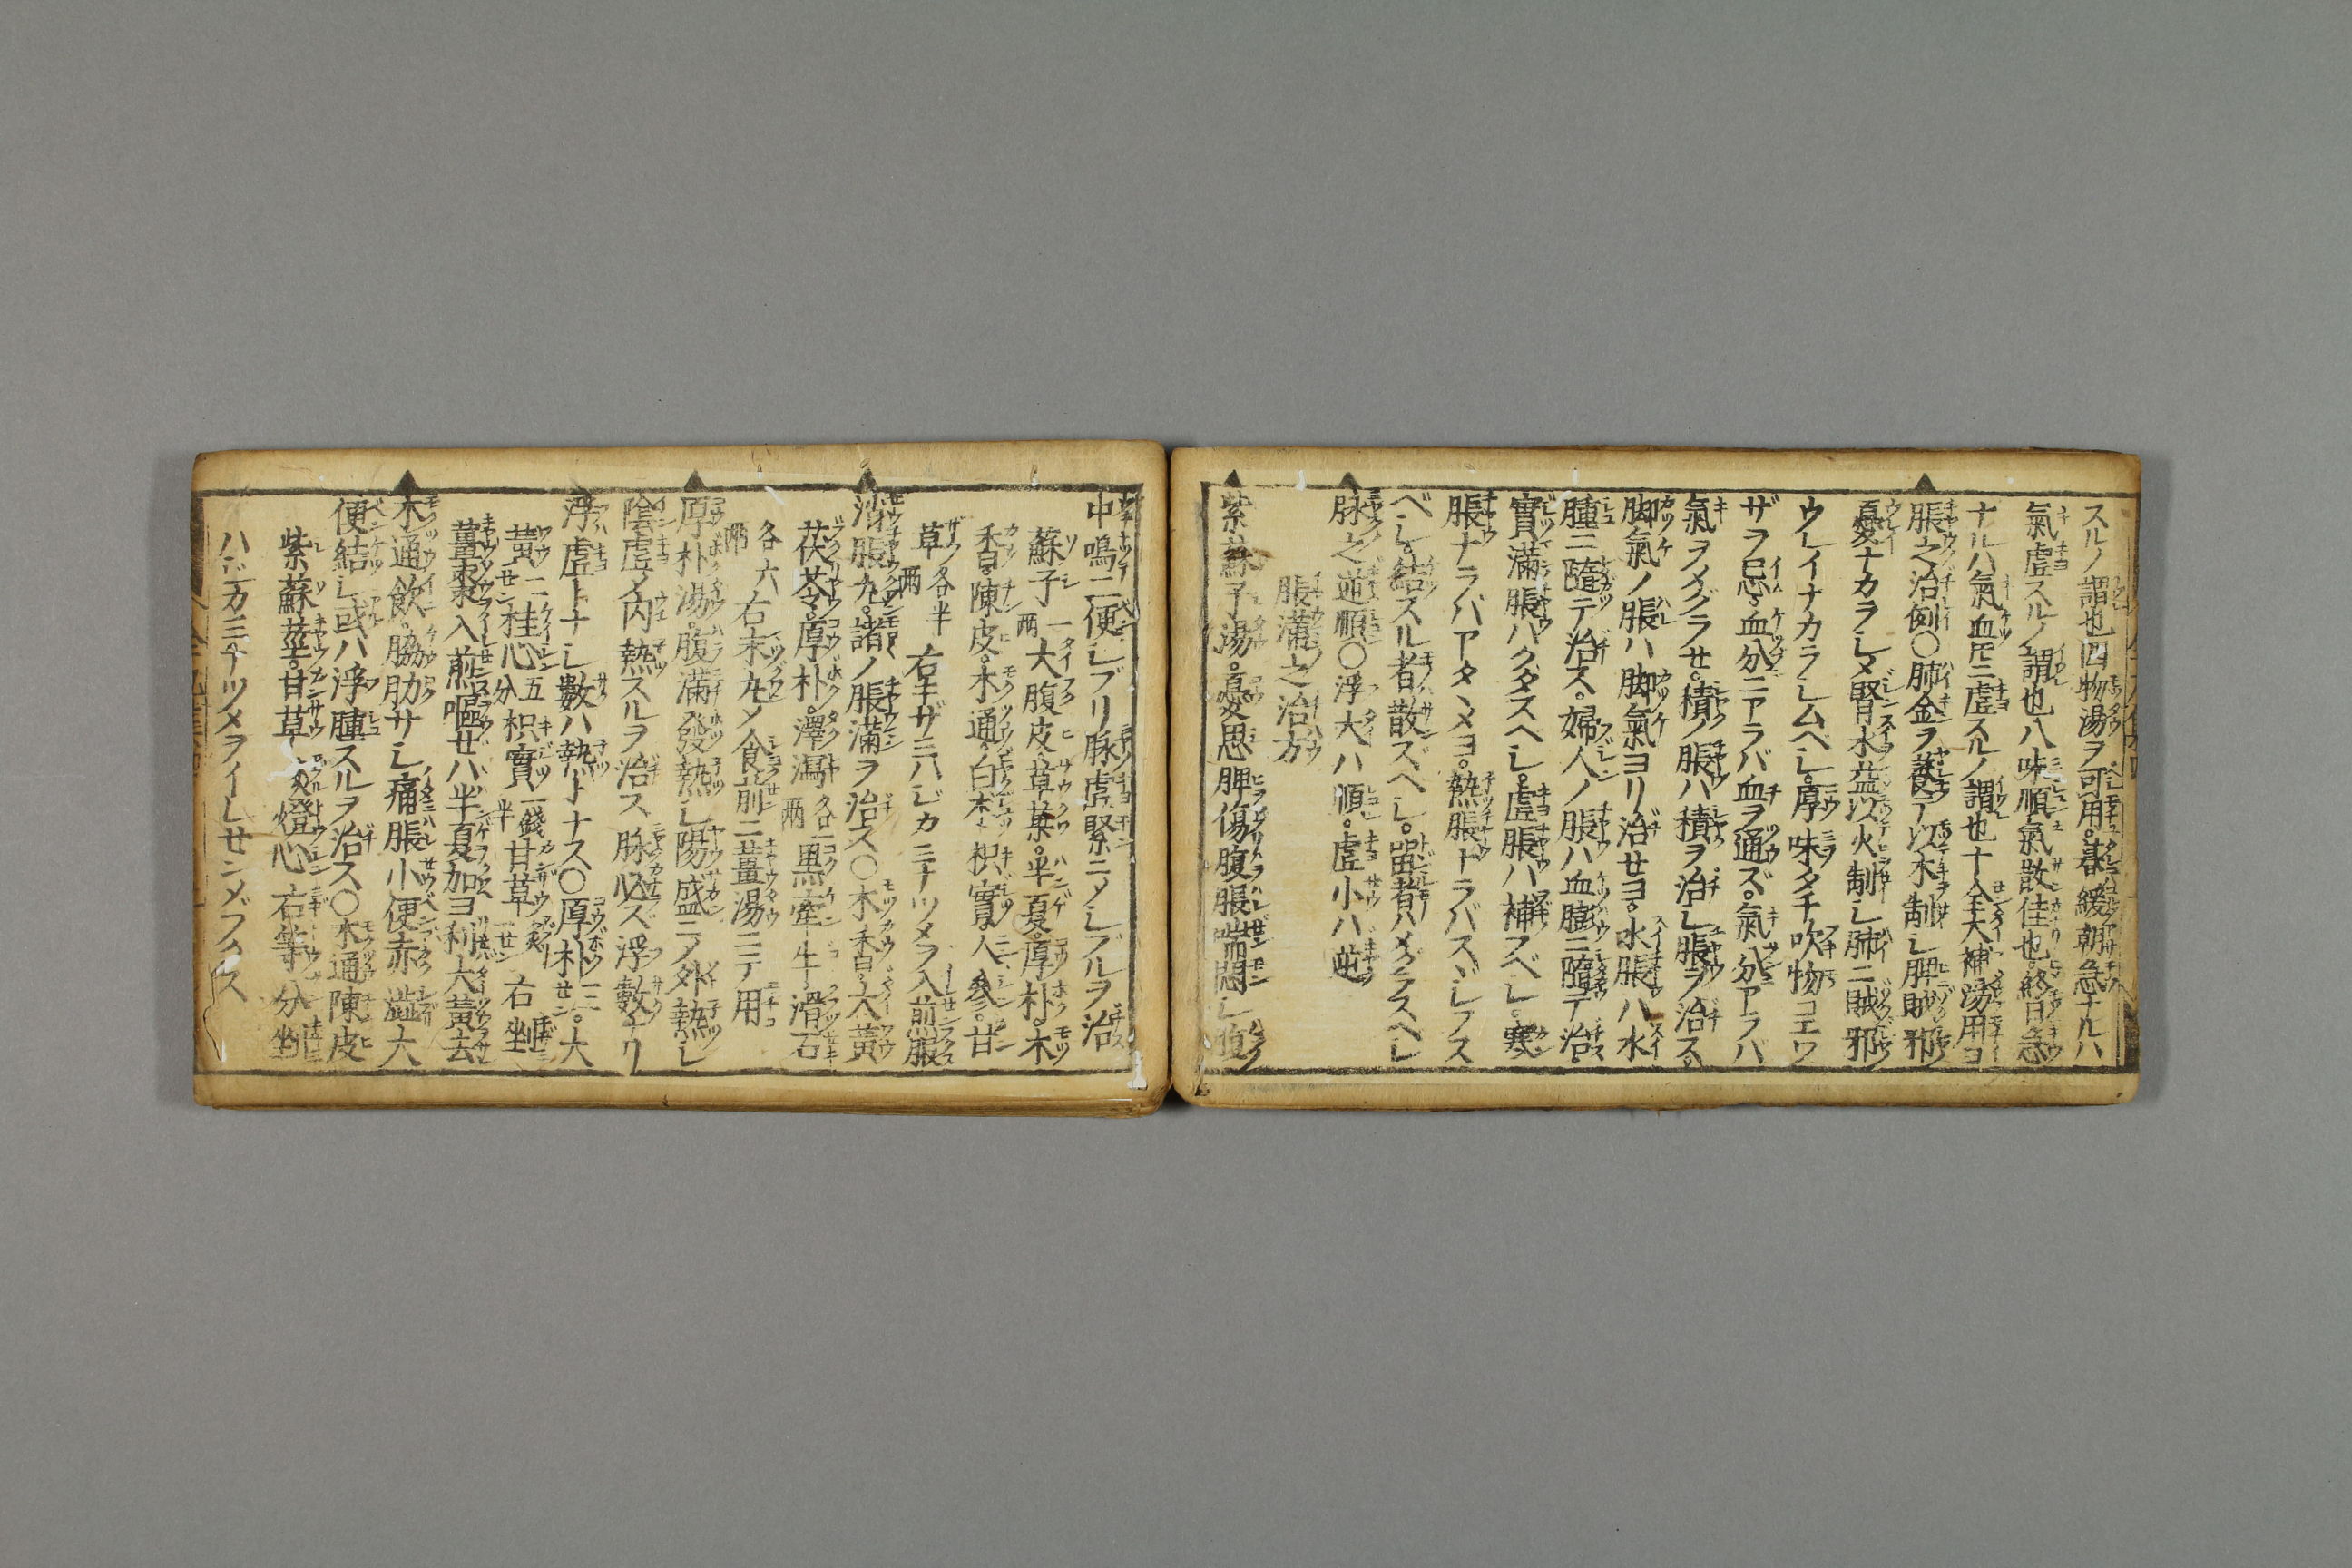 スルノ謂也四物湯ヲ可用。暮緩朝急ナルハ
氣虚スルノ謂也八味順氣散佳也。終日急
ナルハ氣血圧ニ虚スルノ謂也十全大補湯用ヨ
脹之治例〇肺金ヲ養テ以木制レ脾賊邪
憂ナカラレメ腎水益以火制レ肺ニ賊邪
ウレイナカラレムベレ。厚味タチ吹物コエワ
ザヲ忌。血分ニアラバ血ヲ通ズ。氣分アラバ
氣ヲメグラせ。積ノ脹ハ積ヲ治レ脹ヲ治ス。
脚氣ノ脹ハ脚氣ヨリ治せヨ。水脹ハ水
腫ニ隨テ治ス。婦人ノ脹ハ血膨ニ隨テ治。
實滿脹ハクダスヘレ。虚脹ハ補フベレ。寒
脹ナラバアタヽメヨ。熱脹ナラバスヾレフス
ベレ。結スル者散ズヘレ。畄者ハメグラスヘレ
脉之逆順〇浮大ハ順。虚小ハ逆
脹滿之治方
紫蘇子湯。憂思脾傷腹脹喘悶レ煩
中鳴二便レブリ脉虚緊ニメレブルヲ治
蘇子一兩大腹皮。草菓。半夏。厚朴。木
香。陳皮。木通。白朮。枳實人參。甘
草各半兩右キザミハジカミナツメヲ入煎服
消脹丸。諸ノ脹滿ヲ治ス〇木香。大黃
茯苓。厚朴。澤瀉各一兩黒牽牛。滑石
各六兩右末丸メ食前ニ薑湯ニテ用
厚朴湯。腹滿發熱レ陽盛ニメ外熱レ
陰虚メ内熱スルヲ治ス脉必ズ浮數ナリ
浮虚トナレ數ハ熱トナス〇厚朴三せン。大
黃二せン桂心五分枳實一錢半甘草炙一せン右剉
薑棗入煎嘔せバ半夏加ヨ利大黃去
木通飮。脇肋サレ痛脹小便赤澁大
便結レ或ハ浮腫スルヲ治ス〇木通陳皮
紫蘇莖。甘草炙燈心右等分剉
ハジカミナツメヲイレせンメフクス